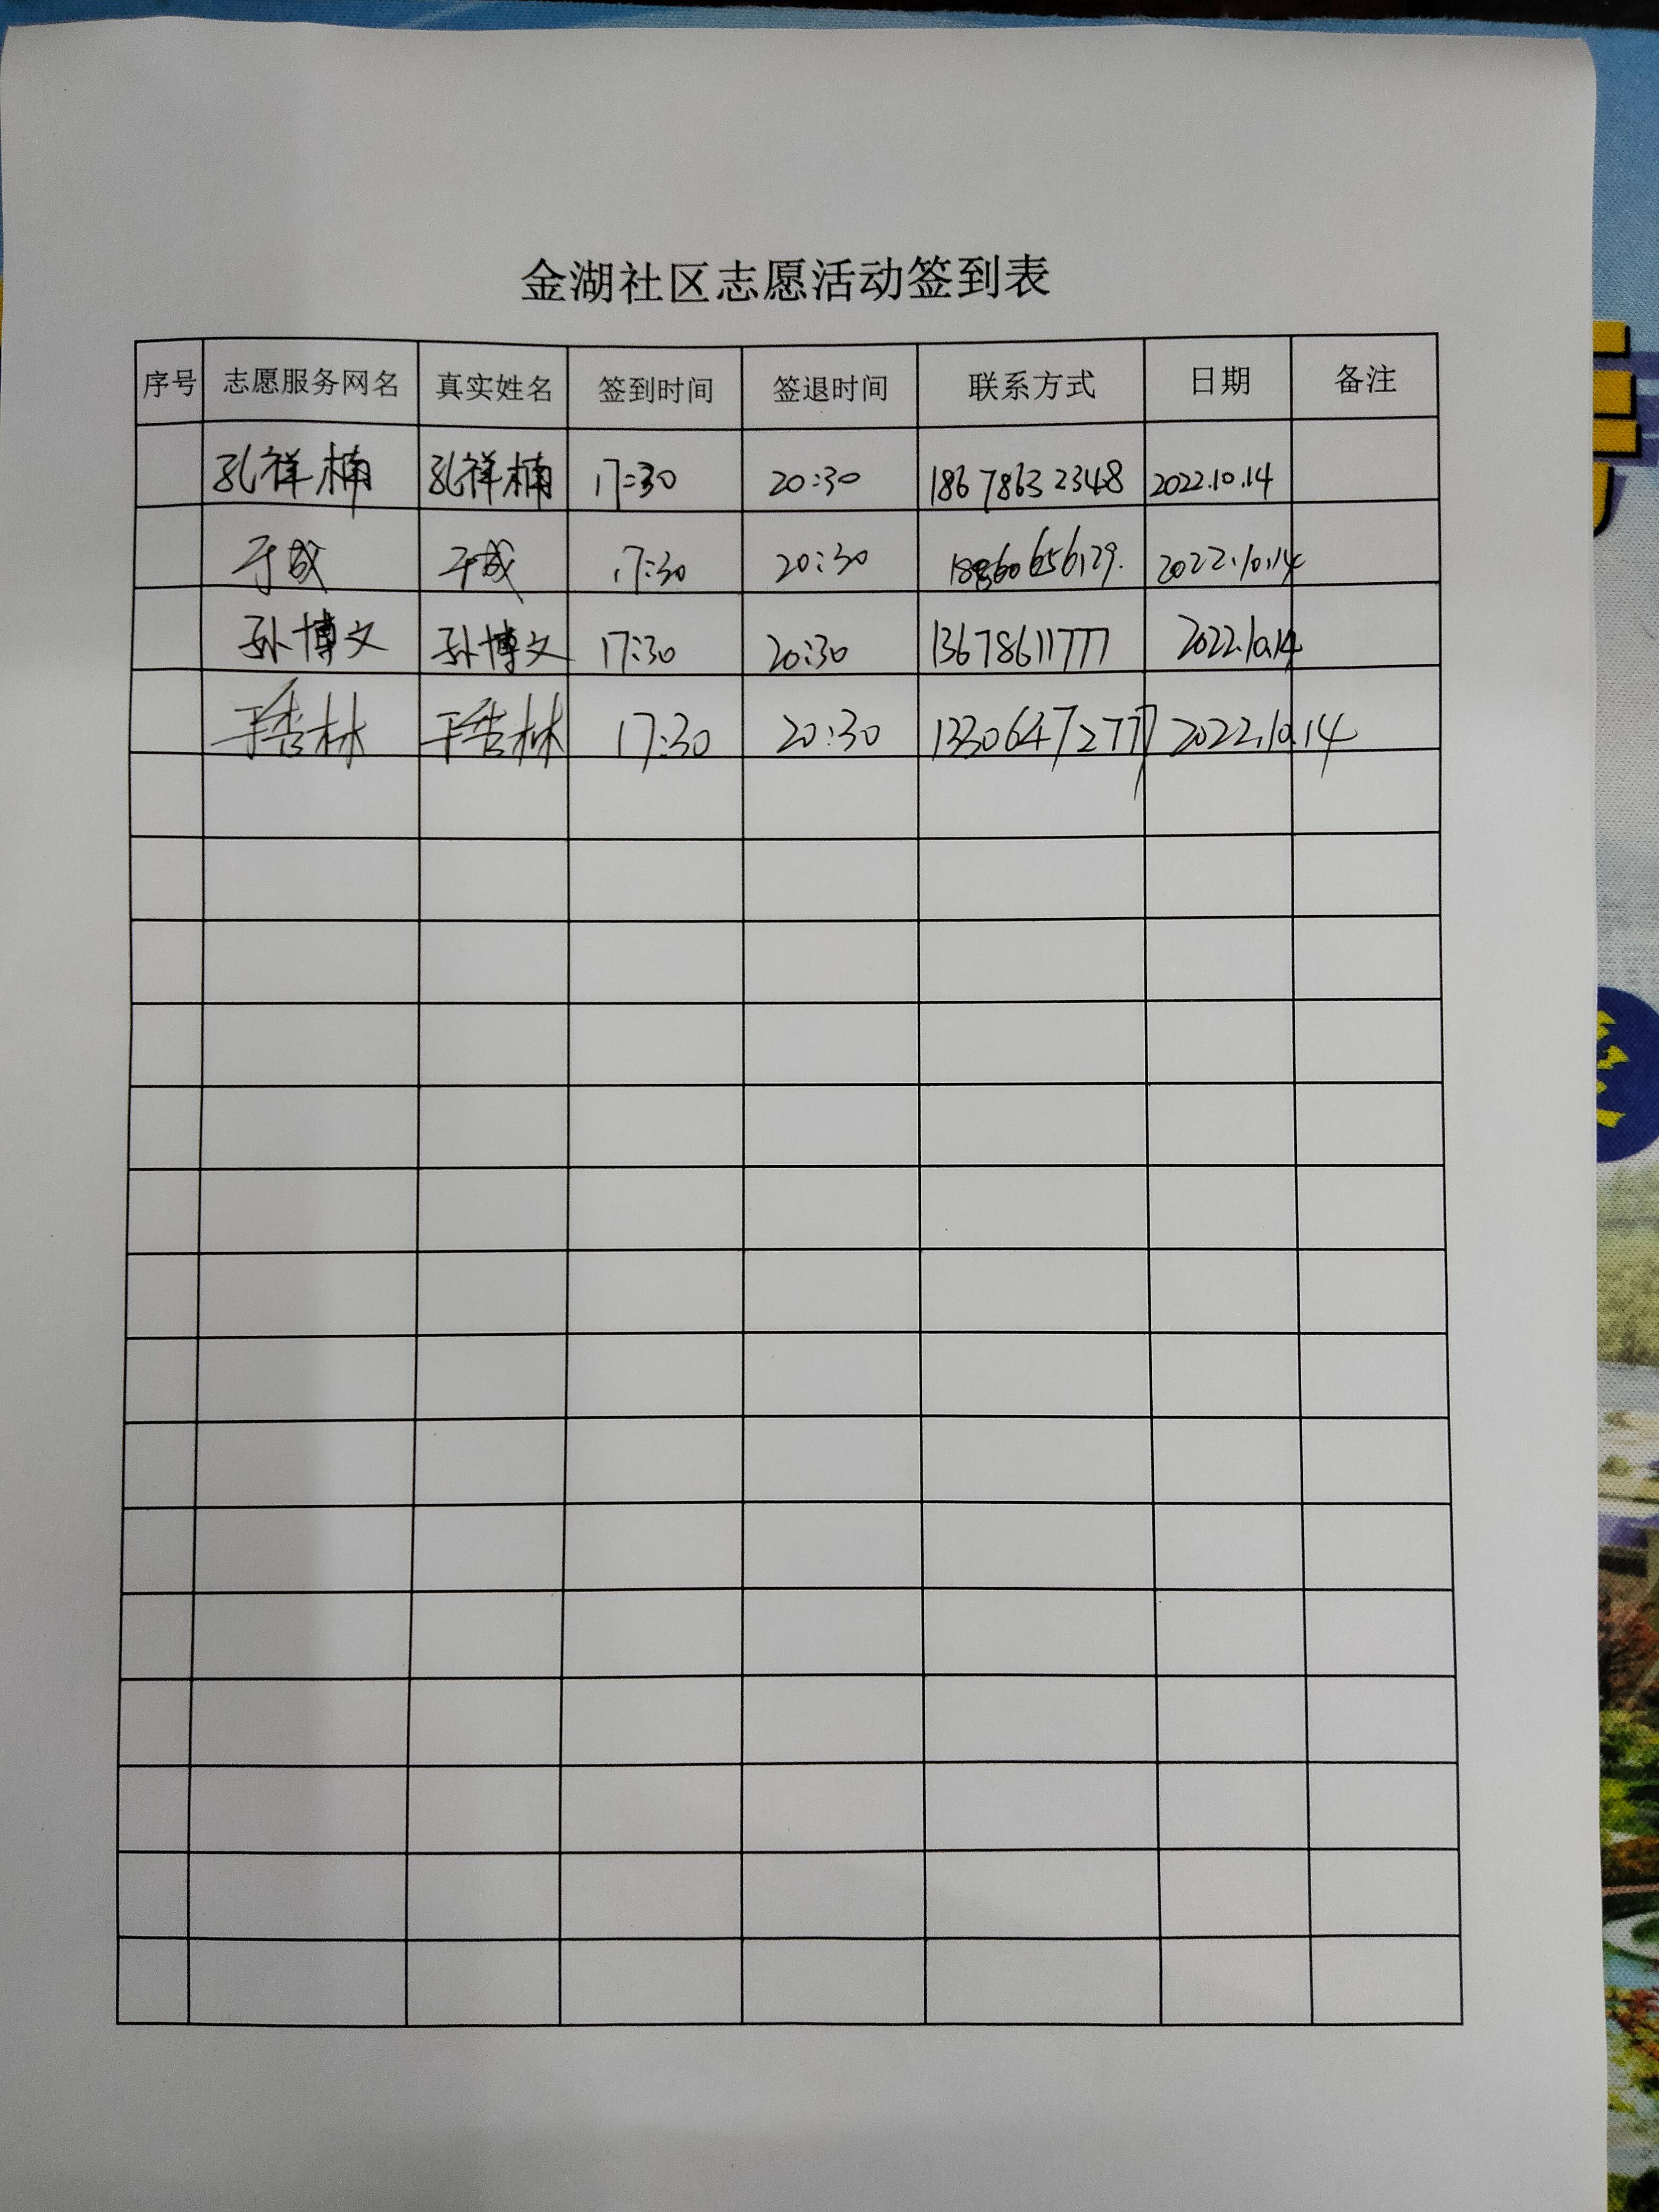 金湖社区志愿活动签到表
序号 志愿服务网名 真实姓名 签到时间 签退时间 联系方式 日期 备注
孔祥楠 孔祥楠 17:30 20:30 18678632348 2022.10.14
于成 于成 17:30 20:30 2022.10.14
孙博文 孙博文 17:30 20:30 13678611777 2022.10.14
17:30 20:30 13306472777 2022.10.14